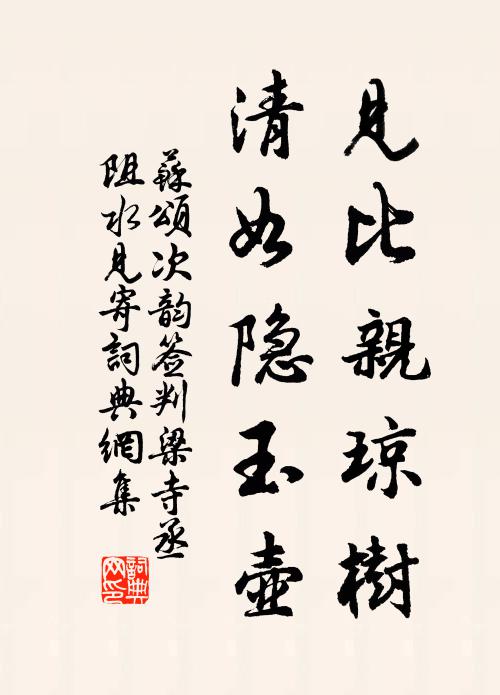 見比親琼樹
清如隐玉壺
蘇頌次韵签判梁寺丞
阻水見寄詞典網集
詞典网印